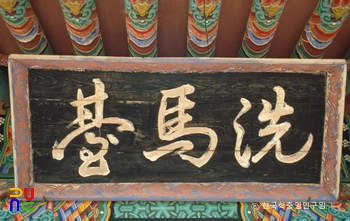 洗馬臺
© 한국학중앙연구원